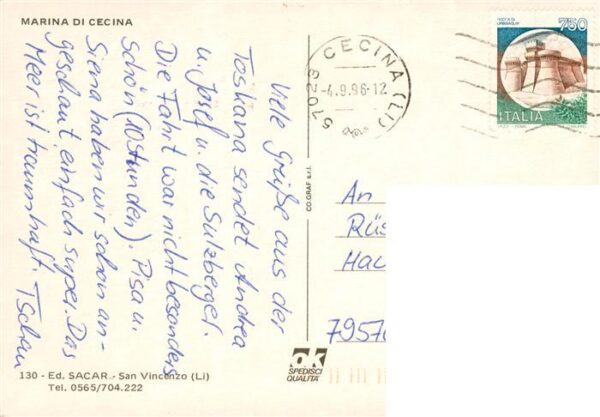 MARINA DI CECINA
Viele Grüße aus der
Toskana sendet Andrea
u. Josef u. die Sulzberger.
Die Fahrt war nicht besonders
schön (10 Stunden). Pisa u.
Siena haben wir schon an-
geschaut, einfach super. Das
Meer ist traumhaft. Tschau
130 - Ed. SACAR - San Vincenzo (Li)
Tel. 0565/704.222
CO.GRAF s.r.l.
OK
SPEDISCI
QUALITÀ
57023 CECINA (LI)
-4.9.96-12
750
ITALIA
An
Rüs
Hau
7957